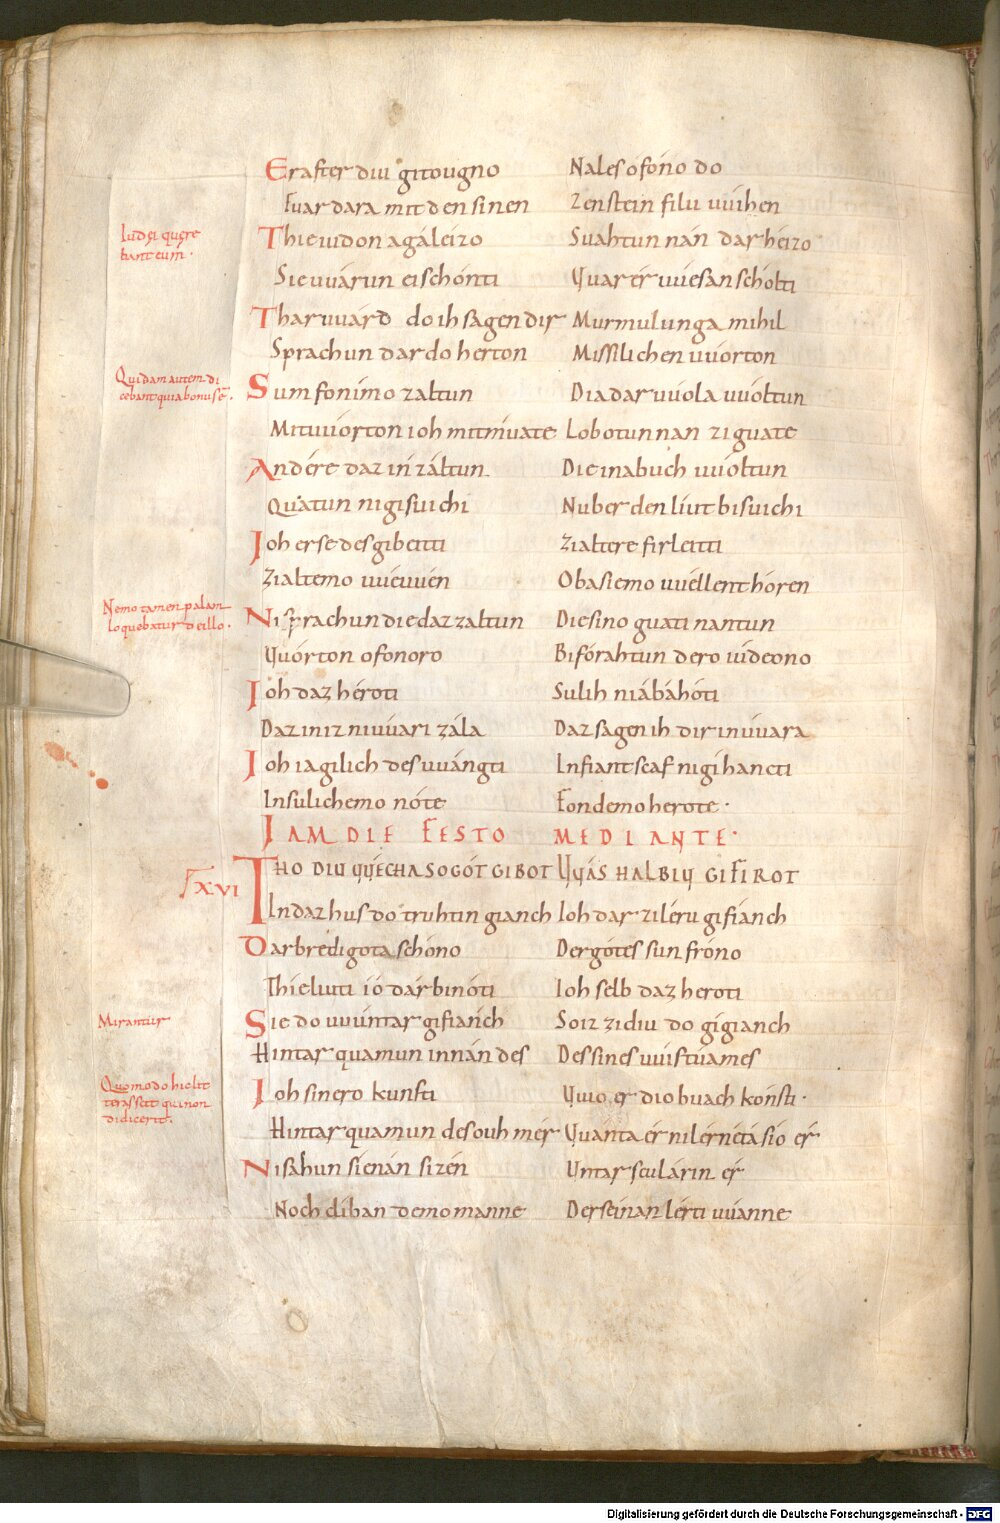 Erafter diu gitougno Nales ofóno do
Fuar dara mit den sinen Zenstein filu uuihen
Iudęi quęre
bant eum.
Thie iudon agáleizo Suahtun nán dar héizo
Sie uuárun eischónti Vuar ér uuesan schólti
Thar uuárd do ih sagen dir Murmulunga mihil
Sprachun dar do herton Missilichen uuorton
Quidam autem di
cebant quia bonus ē.
Sum fon imo zaltun Dia dar uuola uuoltun
Mit uuórton ioh mit muate Lobotun nan zi guate
Andére daz in záltun Die inabuch uuoltun
Quátun nigisuichi Nuber den liut bisuichi
Ioh er se des gibeitti Zialtere firleitti
Zialtemo uuéuuen Oba siemo uuéllent hóren
Nemo tamen palam
loquebatur de illo.
Nisprachun die daz zaltun Die sino guati nantun
Vuórton ofonoro Biforahtun dero iúdeono
Ioh daz héroti Sulih niábáhóti
Daz iniz niuuari zála Daz sagen ih dir inuuara
Ioh iagilich des uuángti In fiantscaf nigihancti
In sulichemo nóte Fon demo herote.
IAM DIE FESTO MEDIANTE.
XVI
THO DIU VVECHA SO GÓT GIBOT VVÁS HALBIV GIFIROT
In daz hus do truhtin gianch Ioh dar ziléru gifianch
Dar bredigota schóno Der gótes sun fróno
Thie liuti ió dár binóti Ioh selb daz heroti
Mirantur
Sie do uuuntar gifianch So iz zidiu do gigianch
Hintar quamun innán des Des sines uuistúames
Quomodo hic litt
teras scit qui non
didicerit.
Ioh sinero kunsti Vuio er dio buach konsti.
Hintar quamun des ouh mér Vuánta ér nilérnéta sió ér
Nisahun sienán sizén Untar sculárin ér
Noch díhan demo manne Der seinan lérti uuanne
Digitalisierung gefördert durch die Deutsche Forschungsgemeinschaft - DFG